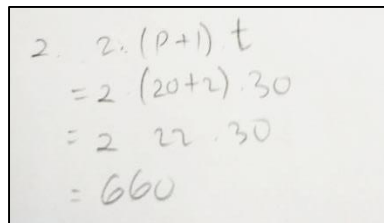 2. 2. (p+1) t
= 2 (20+2) . 30
= 2 22 . 30
= 660